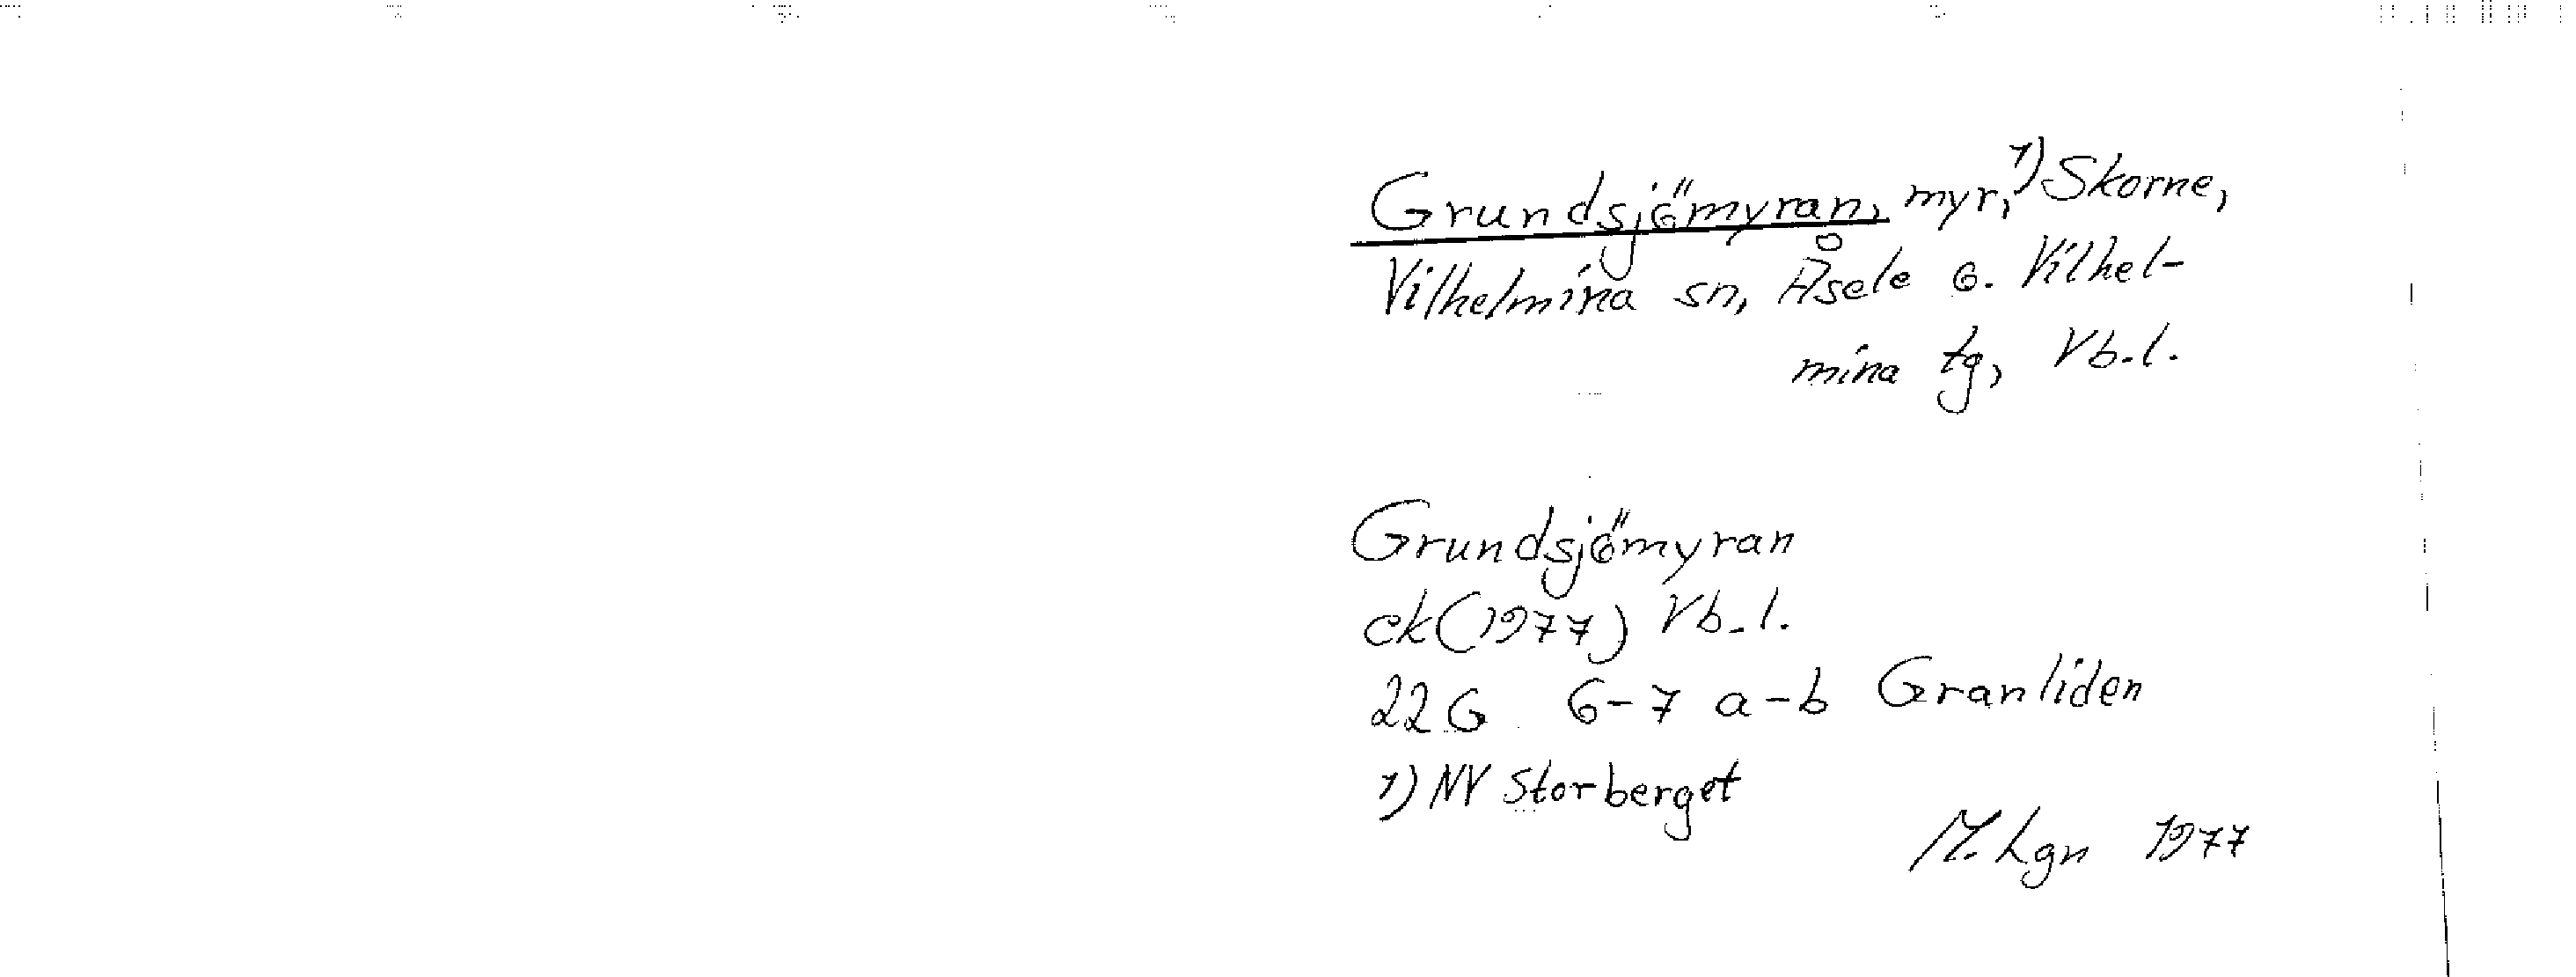 Grundsjömyran, myr, 1) Skorne,
Vilhelmina sn, Åsele o. Vilhel-
mina tg, Vb.l.
Grundsjömyran
ek (1977) Vb.l.
22 G 6-7 a-b Granliden
1) NV Storberget
M. Lgn 1977